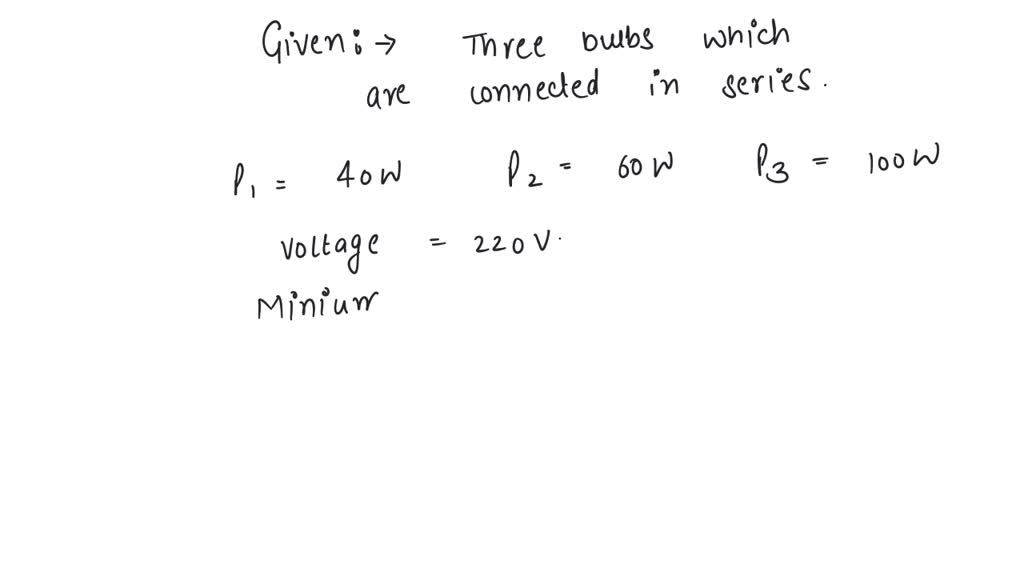 Given:→ Three bulbs which
are connected in series.
P1 = 40W P2 = 60W P3 = 100W
Voltage = 220V.
Minium